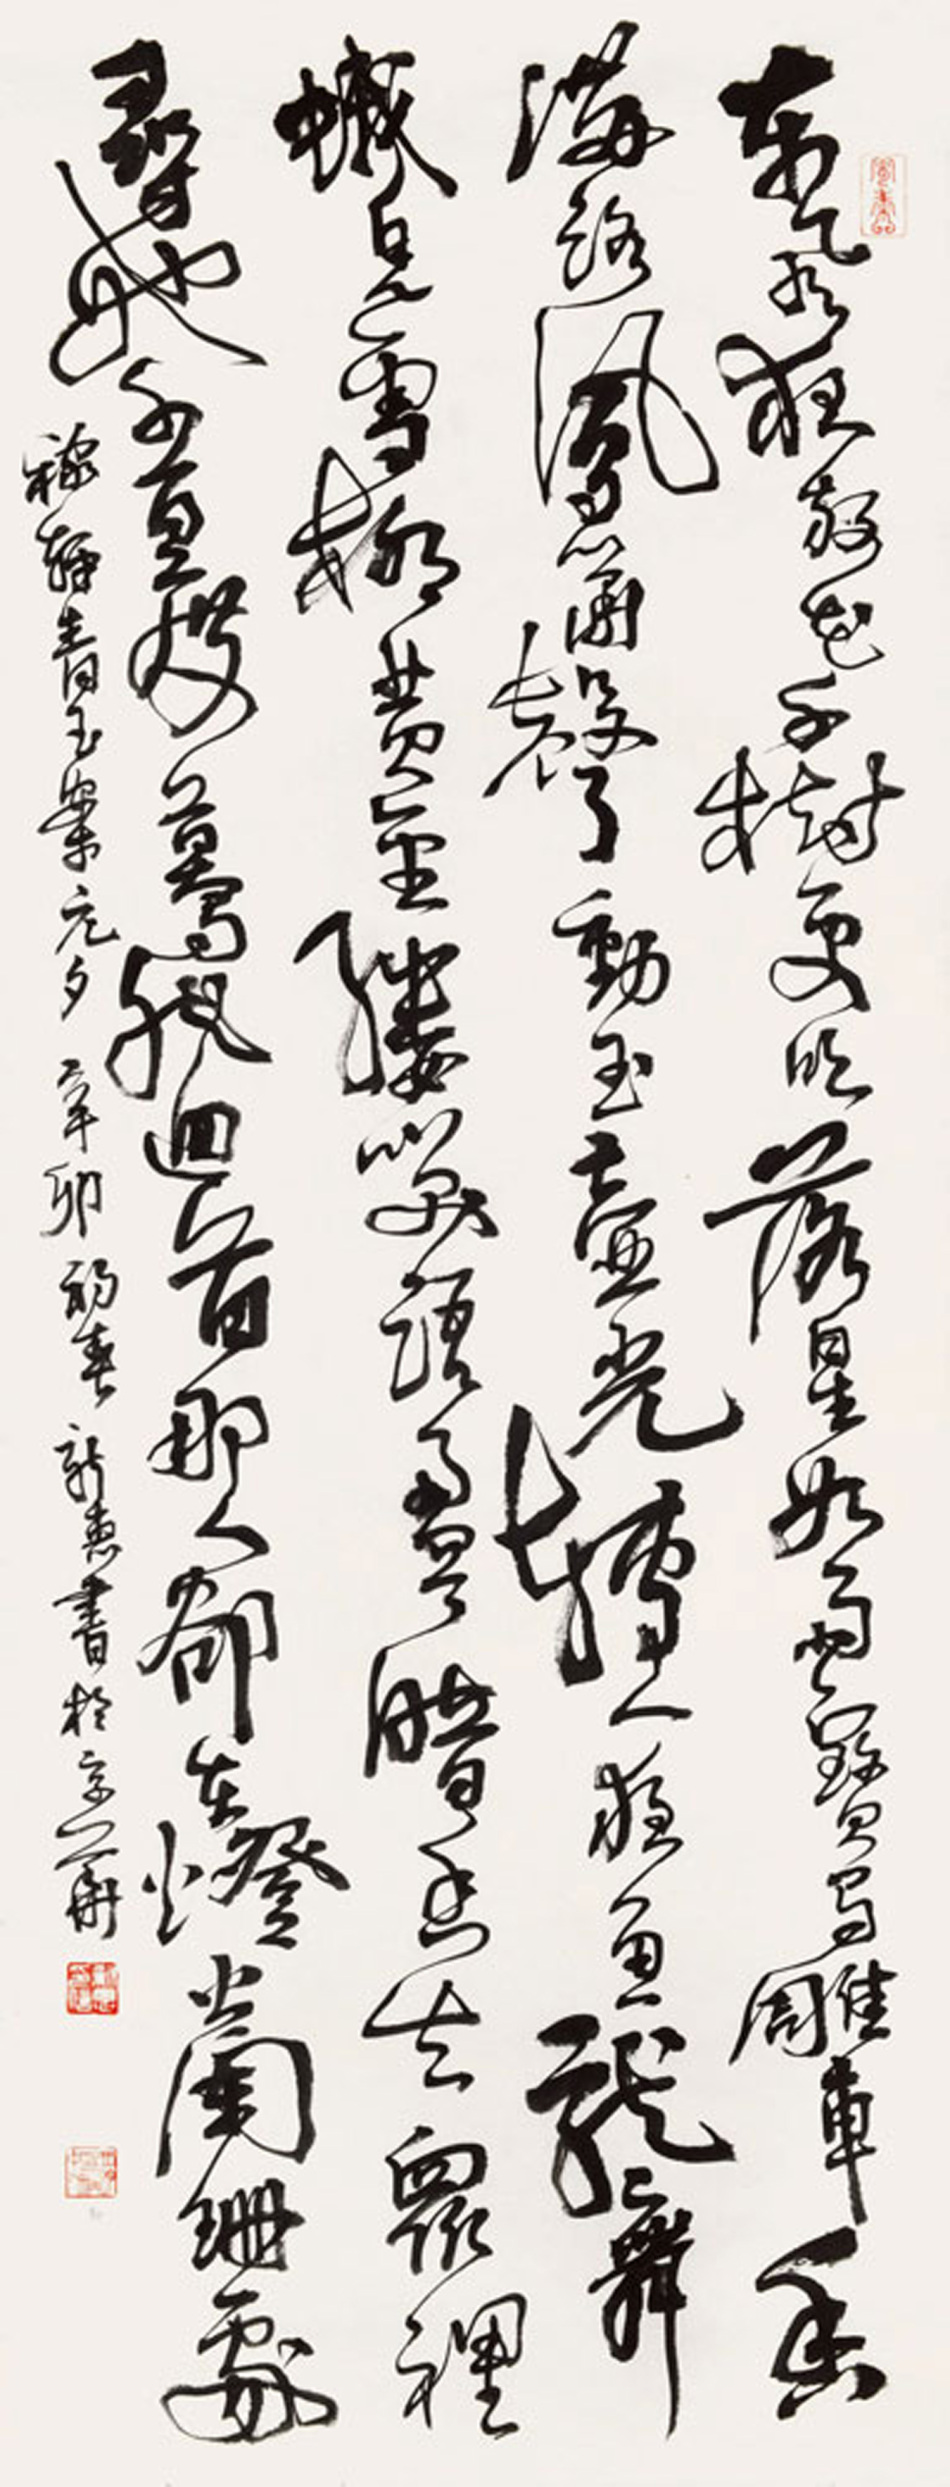 東風夜放花千樹更吹落星如雨寶馬雕車香
滿路鳳簫聲動玉壺光轉一夜魚龍舞
蛾兒雪柳黃金縷笑語盈盈暗香去眾裡
尋他千百度驀然迴首那人卻在燈火闌珊處
稼軒青玉案元夕 辛卯初春 惠書於京華